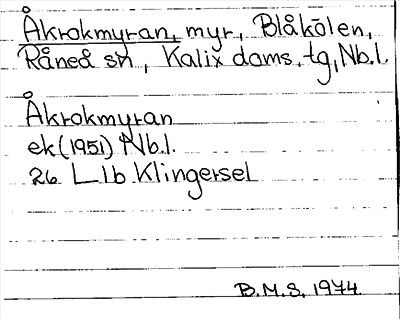 Åkrokmyran, myr, Blåkölen,
Råneå sn, Kalix doms. tg, Nb.l.
Åkrokmyran
ek (1951) Nb.l.
26 L Ib Klingersel
B.M.S. 1974